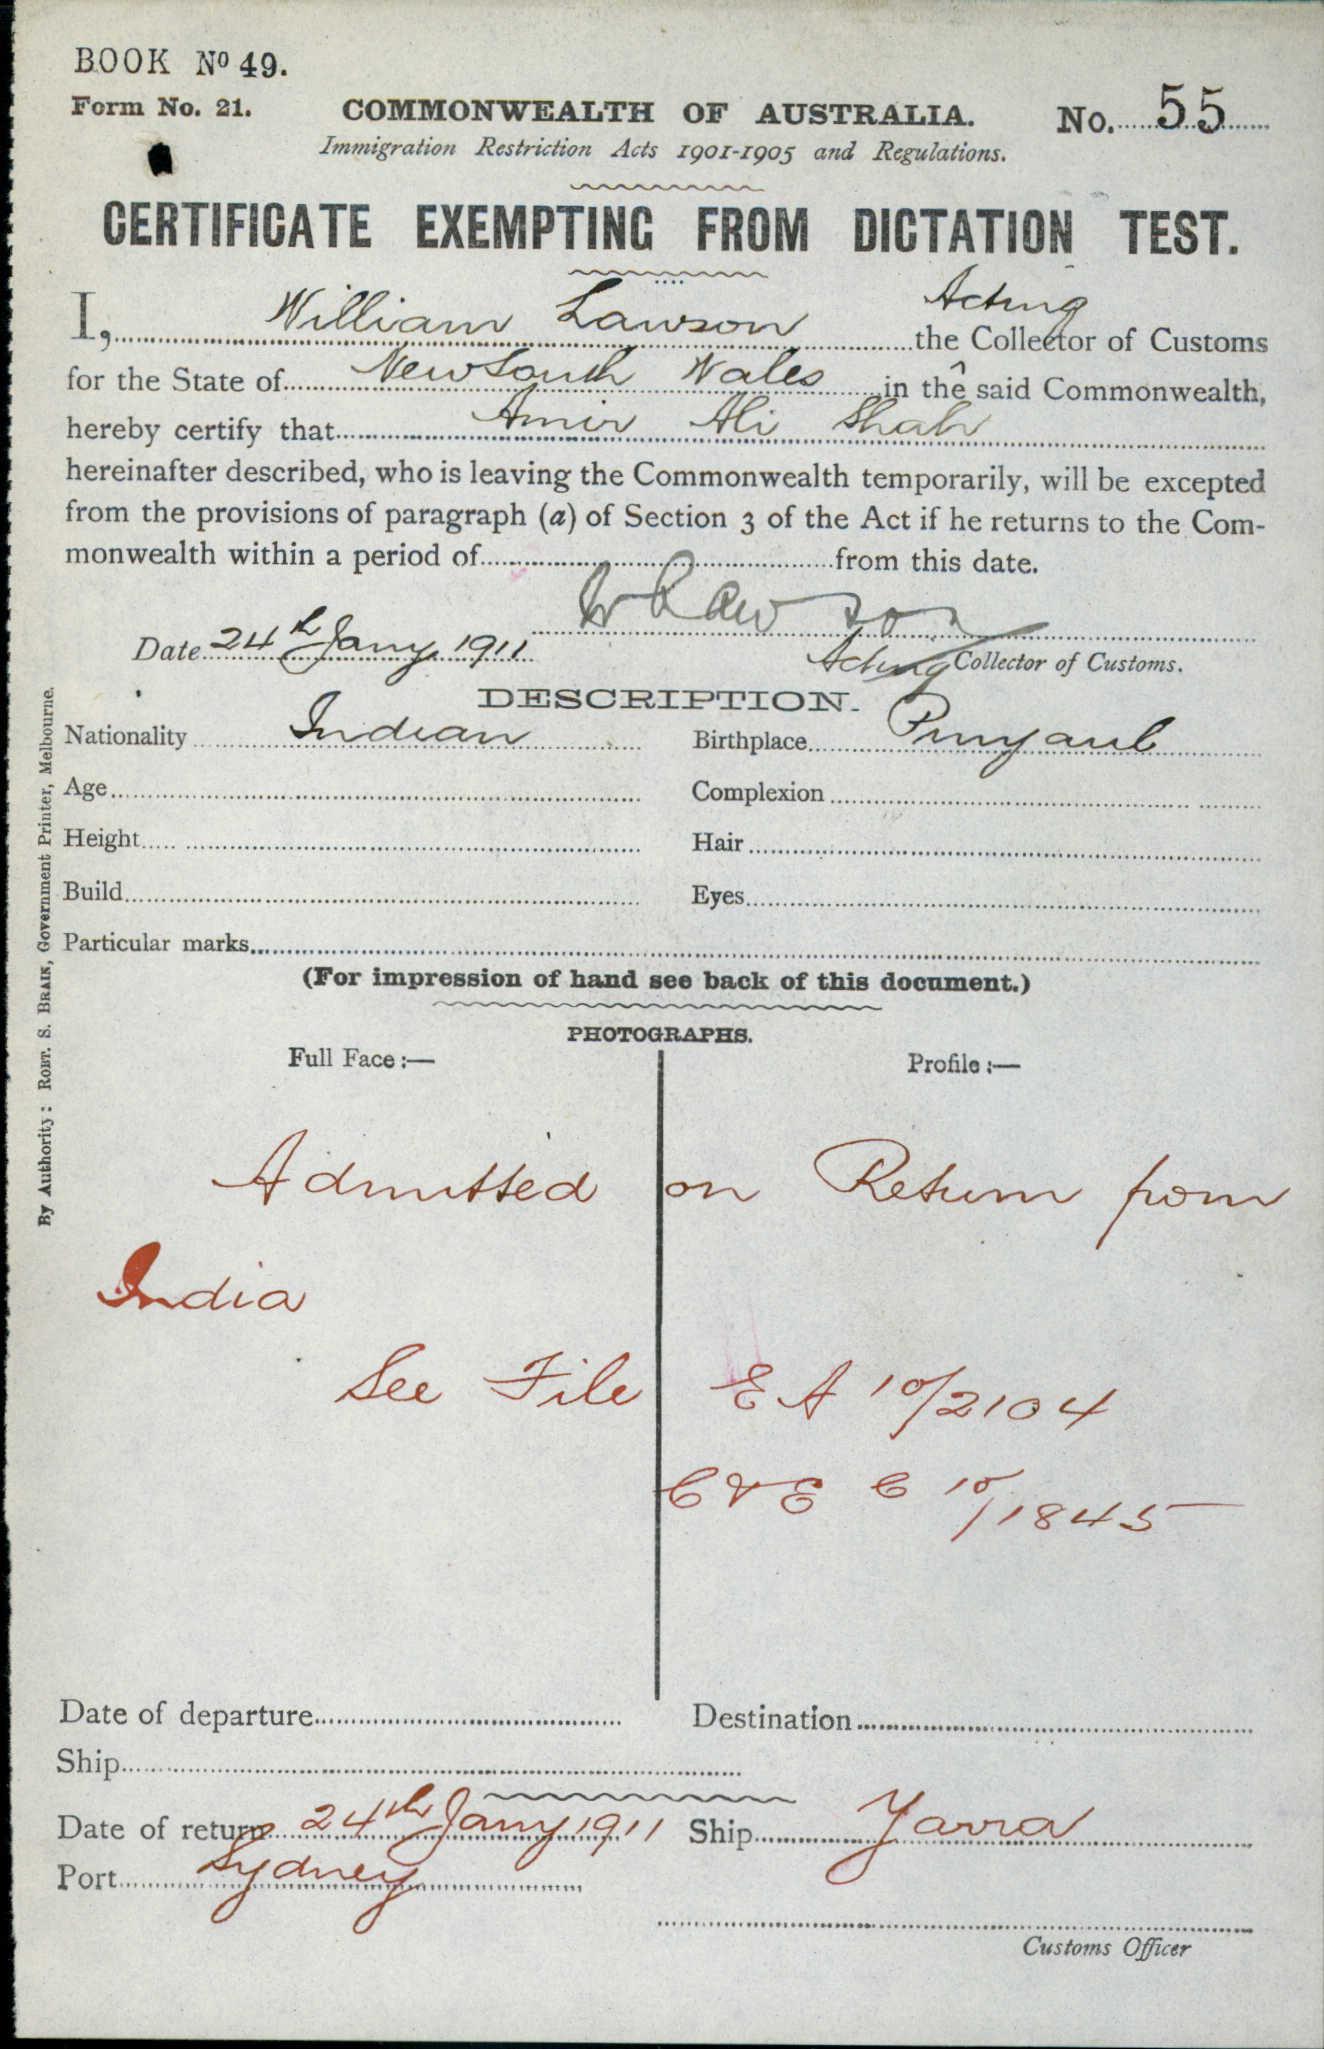 BOOK Nº 49.
Form No. 21.
COMMONWEALTH OF AUSTRALIA.
No. 55
Immigration Restriction Acts 1901-1905 and Regulations.
CERTIFICATE EXEMPTING FROM DICTATION TEST.
I, William Lawson Acting the Collector of Customs
for the State of New South Wales in the ^ said Commonwealth,
hereby certify that Amir Ali Shah
hereinafter described, who is leaving the Commonwealth temporarily, will be excepted
from the provisions of paragraph (a) of Section 3 of the Act if he returns to the Com-
monwealth within a period of from this date.
W Lawson
Date 24th Jany 1911
Acting Collector of Customs.
DESCRIPTION.
Nationality Indian Birthplace Punjaub
Age Complexion
Height Hair
Build Eyes
Particular marks
(For impression of hand see back of this document.)
PHOTOGRAPHS.
Full Face :— Profile :—
Admitted on Return from
India
See File E A 10/2104
C & E C 10/1845
Date of departure Destination
Ship
Date of return 24th Jany 1911 Ship Yarra
Port Sydney
Customs Officer
By Authority : ROBT. S. BRAIN, Government Printer, Melbourne.